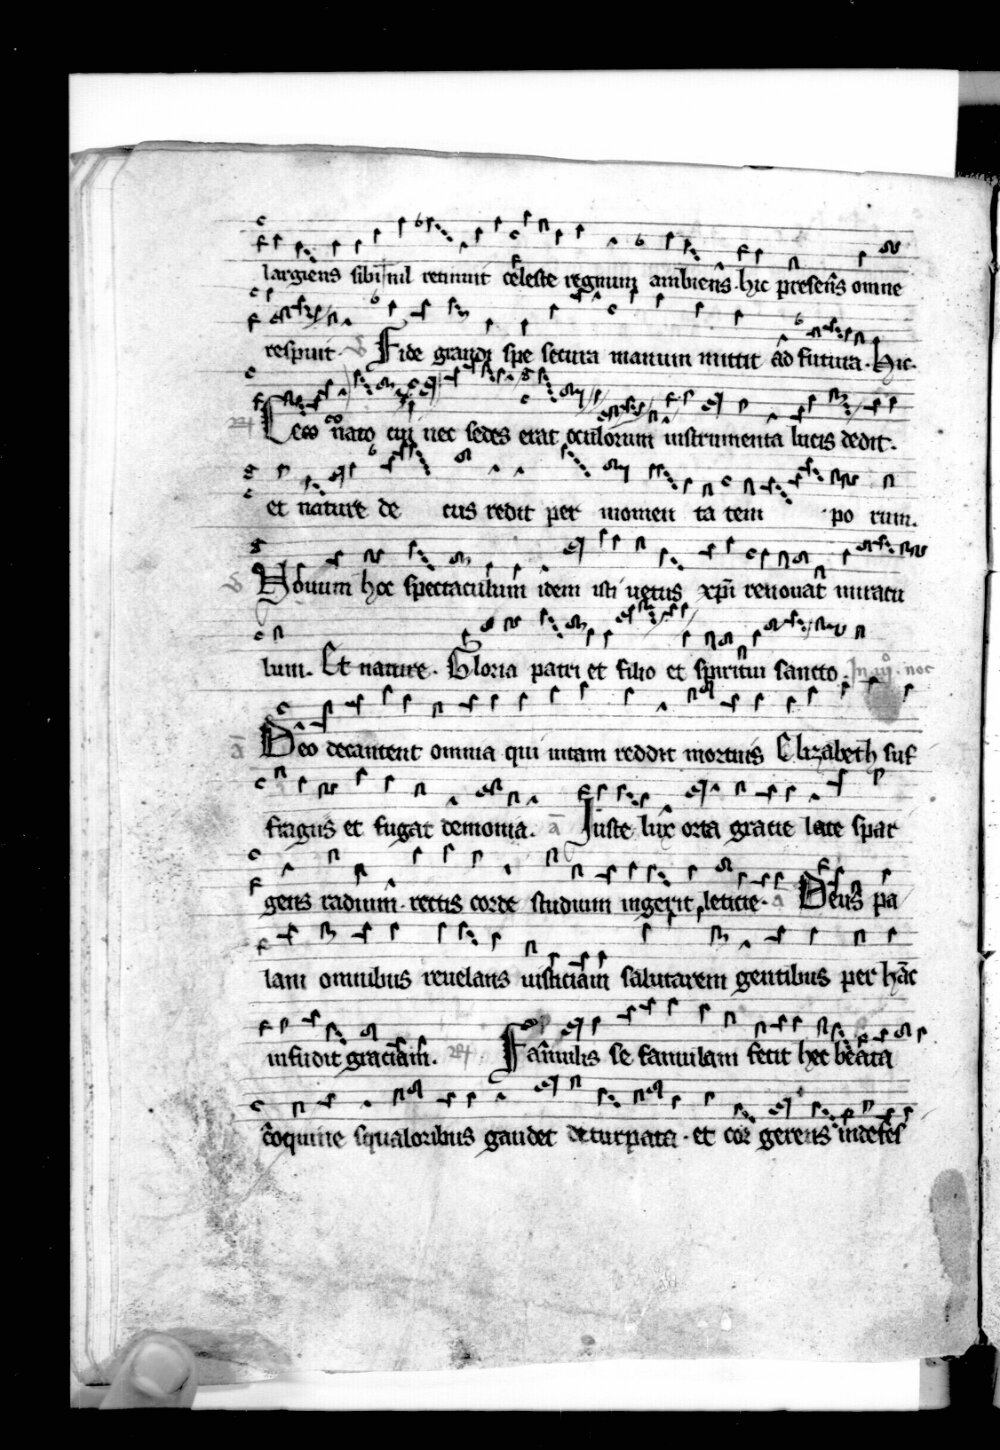 largiens sibi nil retinuit celeste regnum ambiens. hic presens omne
respuit. v Fide grandi spe secura manum mittit ad futura. Hic.
Ceco nato cui nec sedes erat oculorum instrumenta lucis dedit.
et nature de cus redit per momen ta tem po rum.
v Novum hoc spectaculum idem isti vetus xpi renovat miracu
lum. Et nature. Gloria patri et filio et spiritui sancto. In iij. noc
a Deo decantent omnia qui vitam reddit mortuis Elizabeth suf
fragiis et fugat demonia. a Juste lux orta gracie late spar
gens radium. rectis corde studium ingerit leticie. a Deus pa
lam omnibus revelans iusticiam salutarem gentibus per hanc
infudit graciam. Famulis se famulam fecit hec beata
coquine squaloribus gaudet deturpata. et cor gerens indefes